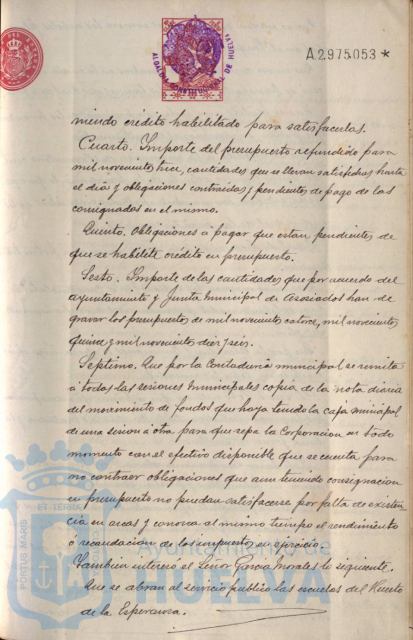 ALCALDIA CONSTITUCIONAL DE HUELVA
A.2.975.053 *
niendo crédito habilitado para satisfacerlas.
Cuarto. Importe del presupuesto refundido para
mil novecientos trece, cantidades que se llevan satisfechas hasta
el dia y obligaciones contraidas y pendientes de pago de las
consignadas en el mismo.
Quinto. Obligaciones á pagar que estan pendientes de
que se habilite crédito en presupuesto.
Sesto. Importe de las cantidades que por acuerdo del
ayuntamiento y Junta Municipal de Asociados han de
gravar los presupuestos de mil novecientos catorce, mil novecientos
quince y mil novecientos diez y seis.
Septimo. Que por la Contaduria municipal se remita
á todas las sesiones municipales copia de la nota diaria
del movimiento de fondos que haya tenido la caja municipal
de una sesion á otra para que sepa la Corporacion en todo
momento con el efectivo disponible que se cuenta para
no contraer obligaciones que aun teniendo consignacion
en presupuesto no puedan satisfacerse por falta de existen
cia en arcas y conozca al mismo tiempo el rendimiento
ó recaudacion de los impuestos en ejercicio.
Tambien interesó el Señor Garcia Morales lo siguiente.
Que se abran al servicio publico las escuelas del Huerto
de la Esperanza.
PORTUS MARIS
ET TERRAE
Ayuntamiento de
HUELVA